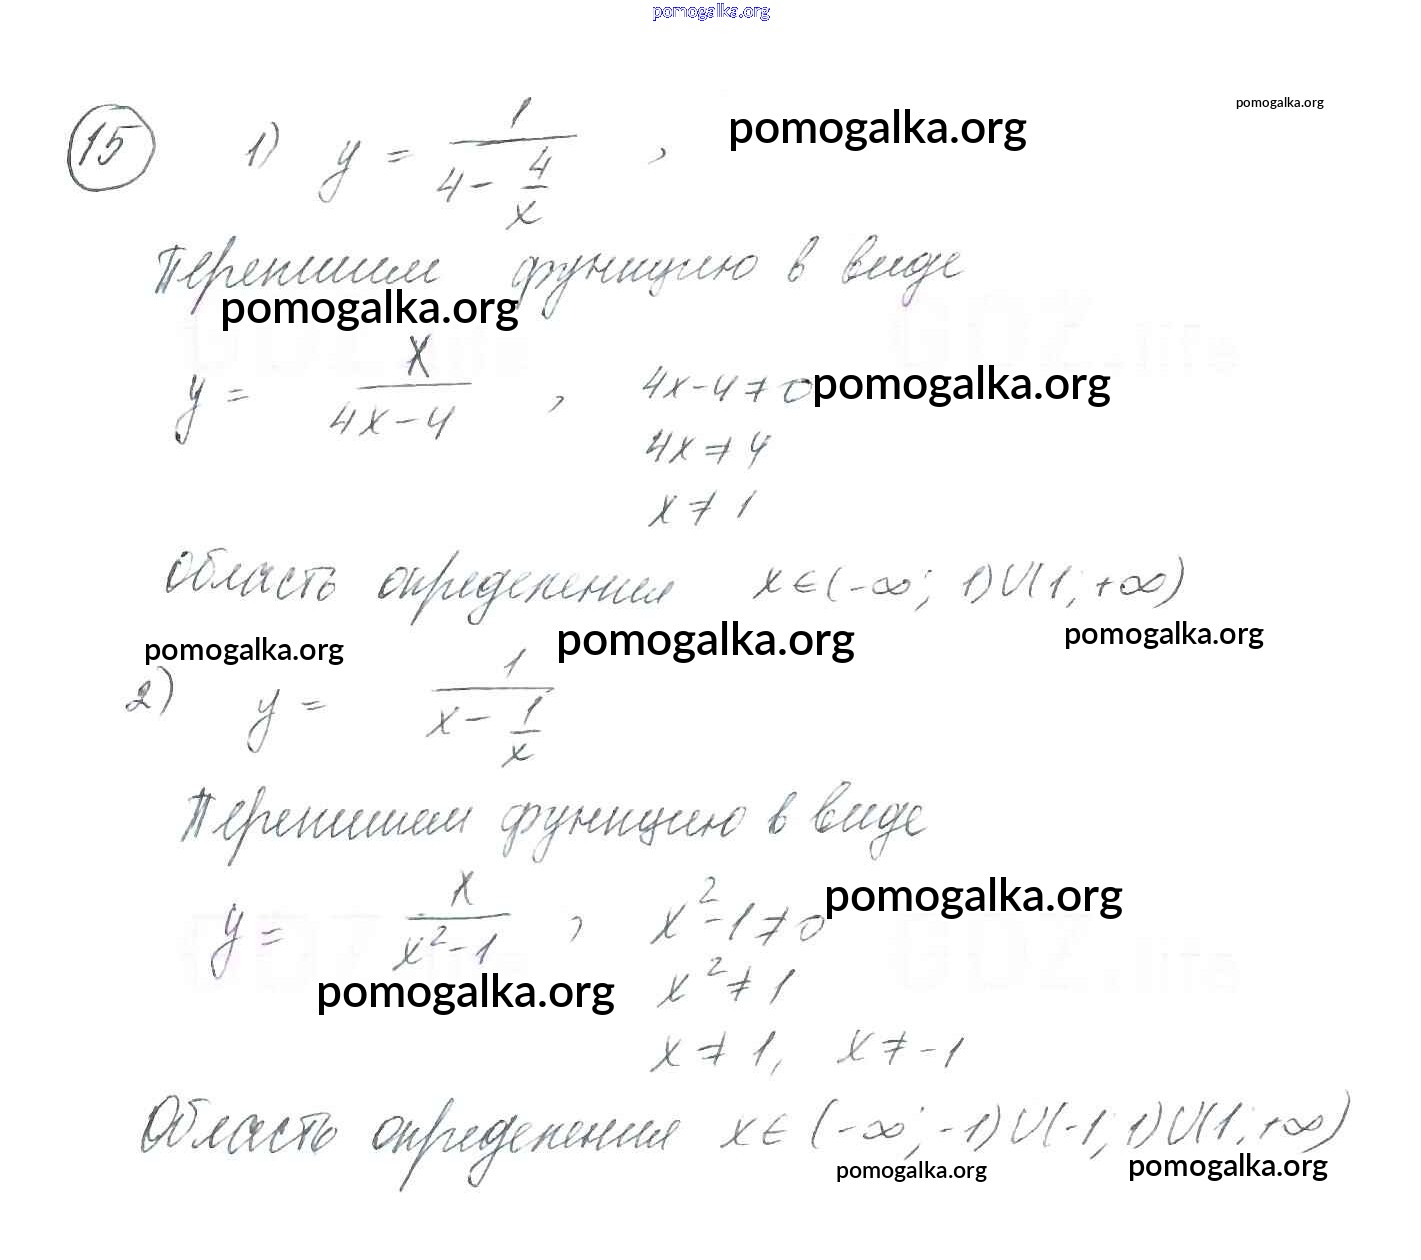 pomogalka.org
pomogalka.org
15 1) y = 1/(4 - 4/x) , pomogalka.org
Перепишем функцию в виде
pomogalka.org
y = x/(4x-4) , 4x-4≠0 pomogalka.org
4x≠4
x≠1
Область определения x∈(-∞; 1)U(1; +∞)
pomogalka.org pomogalka.org pomogalka.org
2) y = 1/(x - 1/x)
Перепишем функцию в виде
y = x/(x²-1) , x²-1≠0 pomogalka.org
pomogalka.org x²≠1
x≠1, x≠-1
Область определения x∈(-∞; -1)U(-1; 1)U(1; +∞)
pomogalka.org pomogalka.org